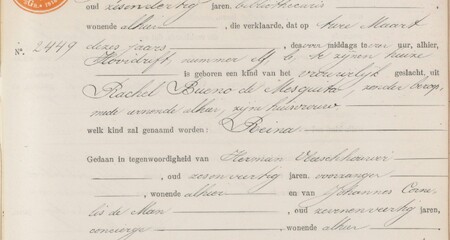 oud zesendertig jaren, bibliothecaris
wonende alhier, die verklaarde, dat op twee Maart
N°. 2449 dezes jaars, des voormiddags te een uur, alhier,
nummer elf b, te zijnen huize
is geboren een kind van het vrouwelijk geslacht, uit
Rachel Bueno de Mesquita, zonder beroep,
mede wonende alhier, zijne huisvrouw
welk kind zal genaamd worden: Reina
Gedaan in tegenwoordigheid van Herman
, oud zesenveertig jaren, voorzanger
, wonende alhier en van Johannes Corne-
lis de Man, oud zevenenveertig jaren,
concierge, wonende alhier